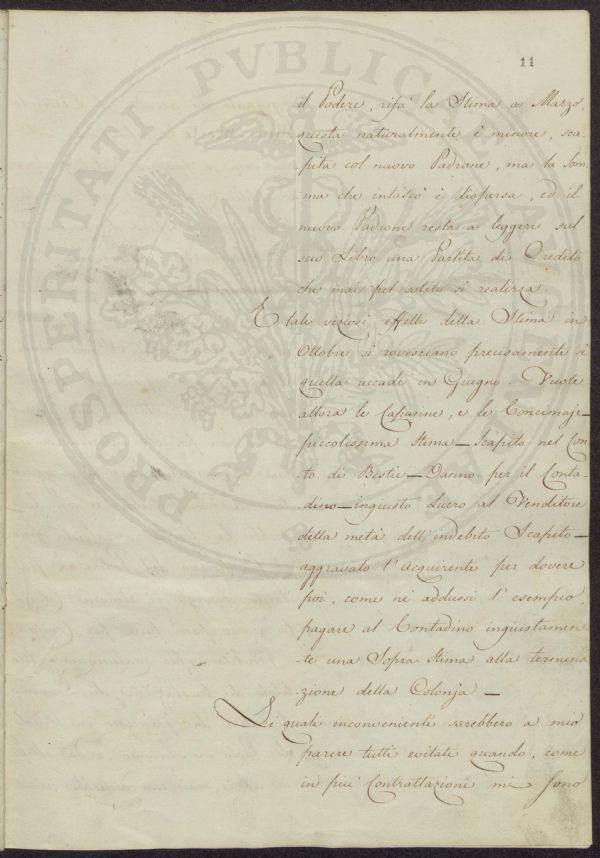 11
il Podere, rifà la Stima a Marzo,
questa naturalmente è minore, sca-
pita col nuovo Padrone, ma la Som-
ma che intascò è dispersa, ed il
nuovo Padrone resta a leggere sul
suo Libro una Partita di Credito
che mai pel solito si realizza.
E tali viziosi effetti della Stima in
Ottobre si rovesciano precisamente se
quella accade in Giugno. Vuote
allora le Capanne, e le Concimaje -
piccolissima Stima - Scapito nel Con-
to di Bestie - Danno per il Conta-
dino - ingiusto Lucro al Venditore
della metà dell'indebito Scapito -
aggravato l'Acquirente per dovere
poi, come nè addussi l'esempio,
pagare al Contadino ingiustamen-
te una Sopra-Stima alla termina-
zione della Colonja -
Li quali inconvenienti sarebbero a mio
parere tutti evitati quando, come
in più Contrattazioni mi sono
PROSPERITATI PVBLICAE